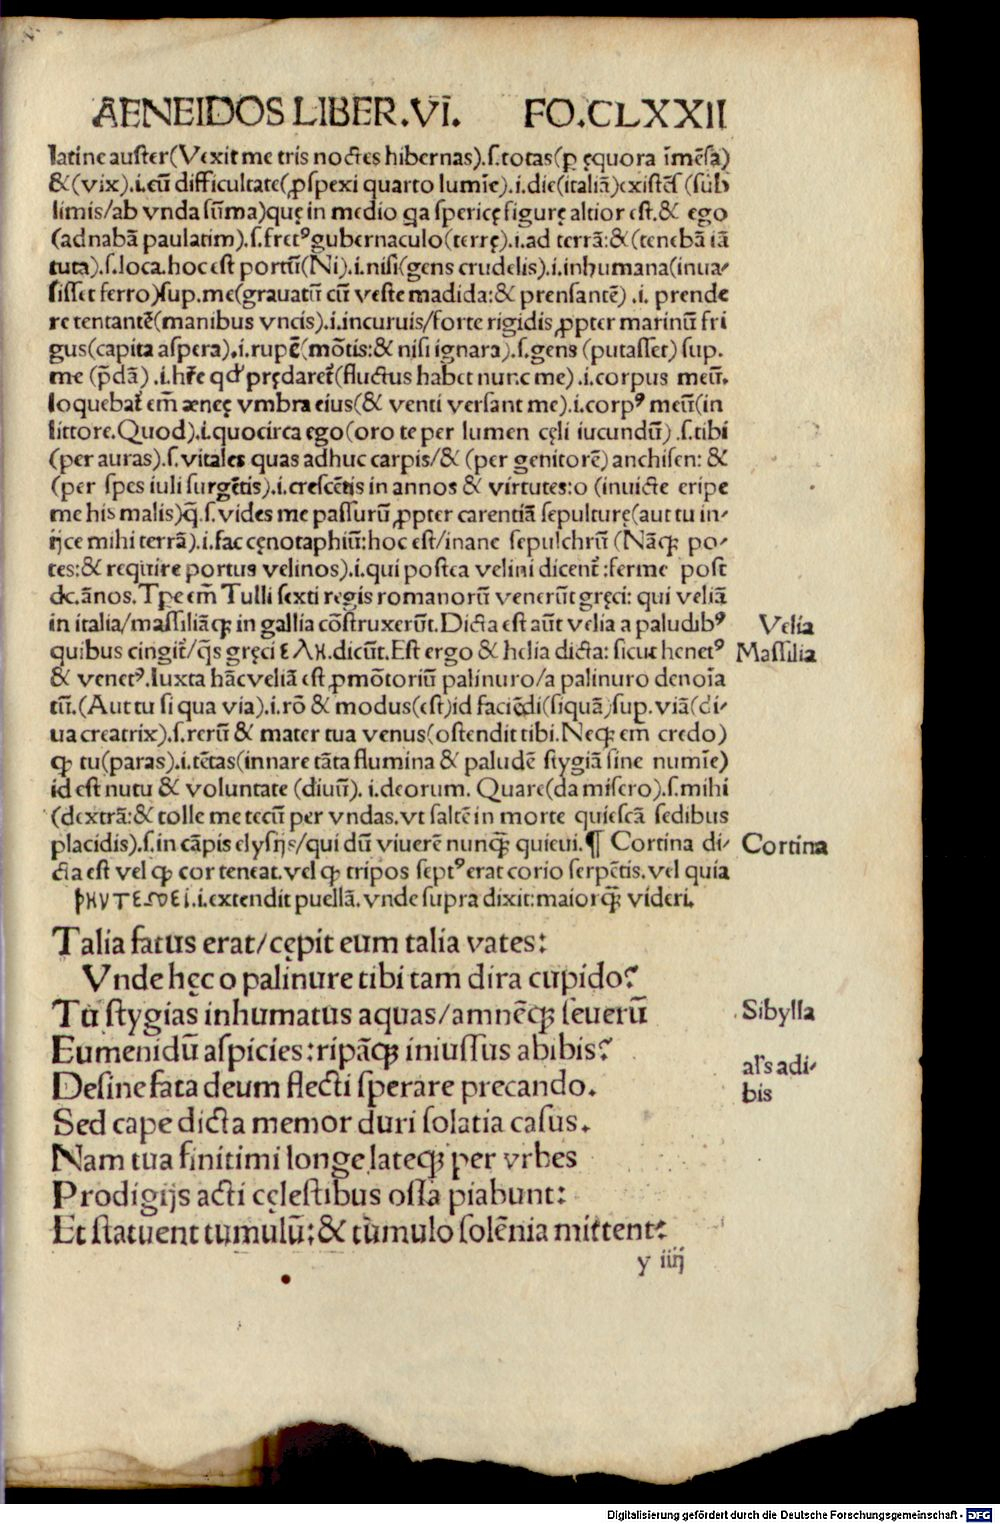 AENEIDOS LIBER.VI. FO.CLXXII
latine auster(Vexit me tris noctes hibernas).ſ.totas(ꝑ ęquora īmēſa)
&(vix).i.cū difficultate(ꝓſpexi quarto lumīe).i.die(italiā)exiſtēs (ſub
limis/ab vnda ſūma)quę in medio ꝗa ſpericę figurę altior eſt.& ego
(adnabā paulatim).ſ.fretꝰ gubernaculo(terrę).i.ad terrā:&(tenebā iā
tuta).ſ.loca.hoc eſt portū(Ni).i.niſi(gens crudelis).i.inhumana(inua-
ſiſſet ferro)ſup.me(grauatū cū veſte madida:& prenſantē) .i. prende
re tentantē(manibus vncis).i.incuruis/forte rigidis ꝓpter marinū fri
gus(capita aſpera).i.rupē(mōtis:& niſi ignara).ſ.gens (putaſſet) ſup.
me (p̄dā) .i.hr̄e qđ prędaret̃(fluctus habet nunc me) .i.corpus meū.
loquebat̃ em̄ æneę vmbra eius(& venti verſant me).i.corpꝰ meū(in
littore.Quod).i.quocirca ego(oro te per lumen cęli iucundū) .ſ.tibi
(per auras).ſ.vitales quas adhuc carpis/& (per genitorē) anchiſen: &
(per spes iuli ſurgētis).i.creſcētis in annos & virtutes:o (inuicte eripe
me his malis)q̄.ſ.vides me paſſurū ꝓpter carentiā ſepulturę(aut tu in-
ijce mihi terrā).i.fac cęnotaphiū:hoc eſt/inane ſepulchrū (Nāꝙ po-
tes:& require portus velinos).i.qui poſtea velini dicent̃:ferme poſt
dc.ānos.Tꝑe em̄ Tulli ſexti regis romanorū venerūt gręci: qui veliā
in italia/maſſiliāꝙ in gallia cōſtruxerūt.Dicta eſt aūt velia a paludibꝰ
quibus cingit̃/q̄s gręci ελη.dicūt.Eſt ergo & helia dicta: ſicut henetꝰ
& venetꝰ.Iuxta hāc veliā eſt ꝓmōtoriū palinuro/a palinuro denoīa
tū.(Aut tu ſi qua via).i.rō & modus(eſt)id faciēdi(ſiquā)ſup.viā(di-
ua creatrix).ſ.rerū & mater tua venus(oſtendit tibi.Neꝙ em̄ credo)
ꝙ tu(paras).i.tētas(innare tāta flumina & paludē ſtygiā ſine numīe)
id eſt nutu & voluntate (diuū). i.deorum. Quare(da miſero).ſ.mihi
(dextrā:& tolle me tecū per vndas.vt ſaltē in morte quieſcā ſedibus
placidis).ſ.in cāpis elyſijs/qui dū viuerē nunꝙ̄ quieui.¶ Cortina di-
cta eſt vel ꝙ cor teneat.vel ꝙ tripos ſeptꝰ erat corio ſerpētis.vel quia
.i.extendit puellā.vnde ſupra dixit:maiorꝙ̄ videri.
Velia
Maſſilia
Cortina
Talia fatus erat/cępit eum talia vates:
Vnde hęc o palinure tibi tam dira cupido?
Tu ſtygias inhumatus aquas/amnēꝙ ſeuerū
Eumenidū aſpicies:ripāꝙ iniuſſus abibis?
Deſine fata deum flecti ſperare precando.
Sed cape dicta memor duri ſolatia caſus.
Nam tua finitimi longe lateꝙ per vrbes
Prodigijs acti cęleſtibus oſſa piabunt:
Et ſtatuent tumulū:& tumulo ſolēnia mittent:
Sibylla
al's adi-
bis
y iiij
Digitalisierung gefördert durch die Deutsche Forschungsgemeinschaft - DFG